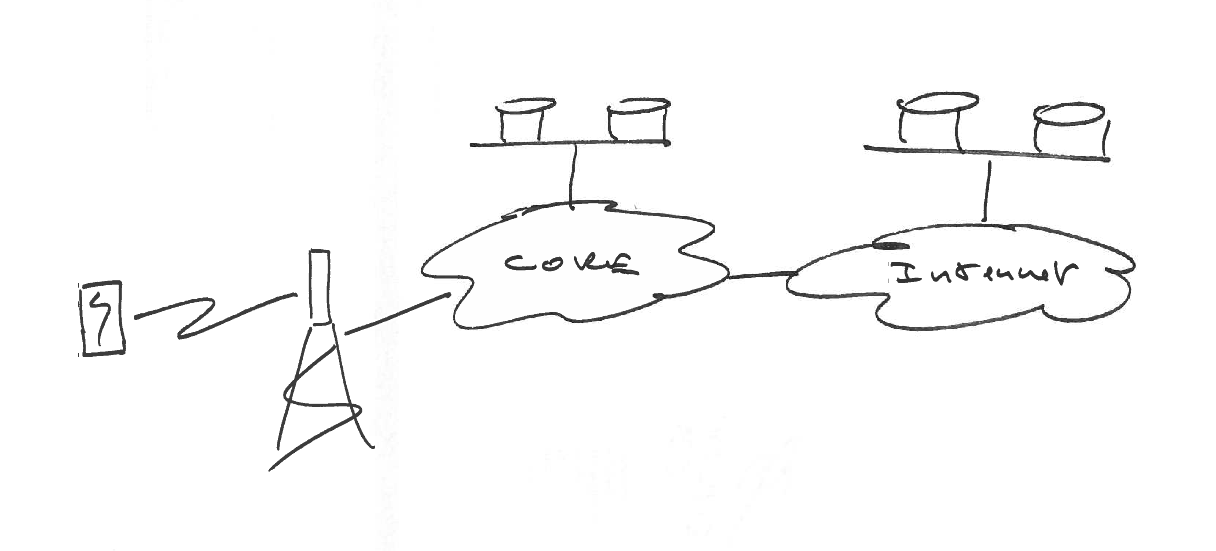 CORE
Internet